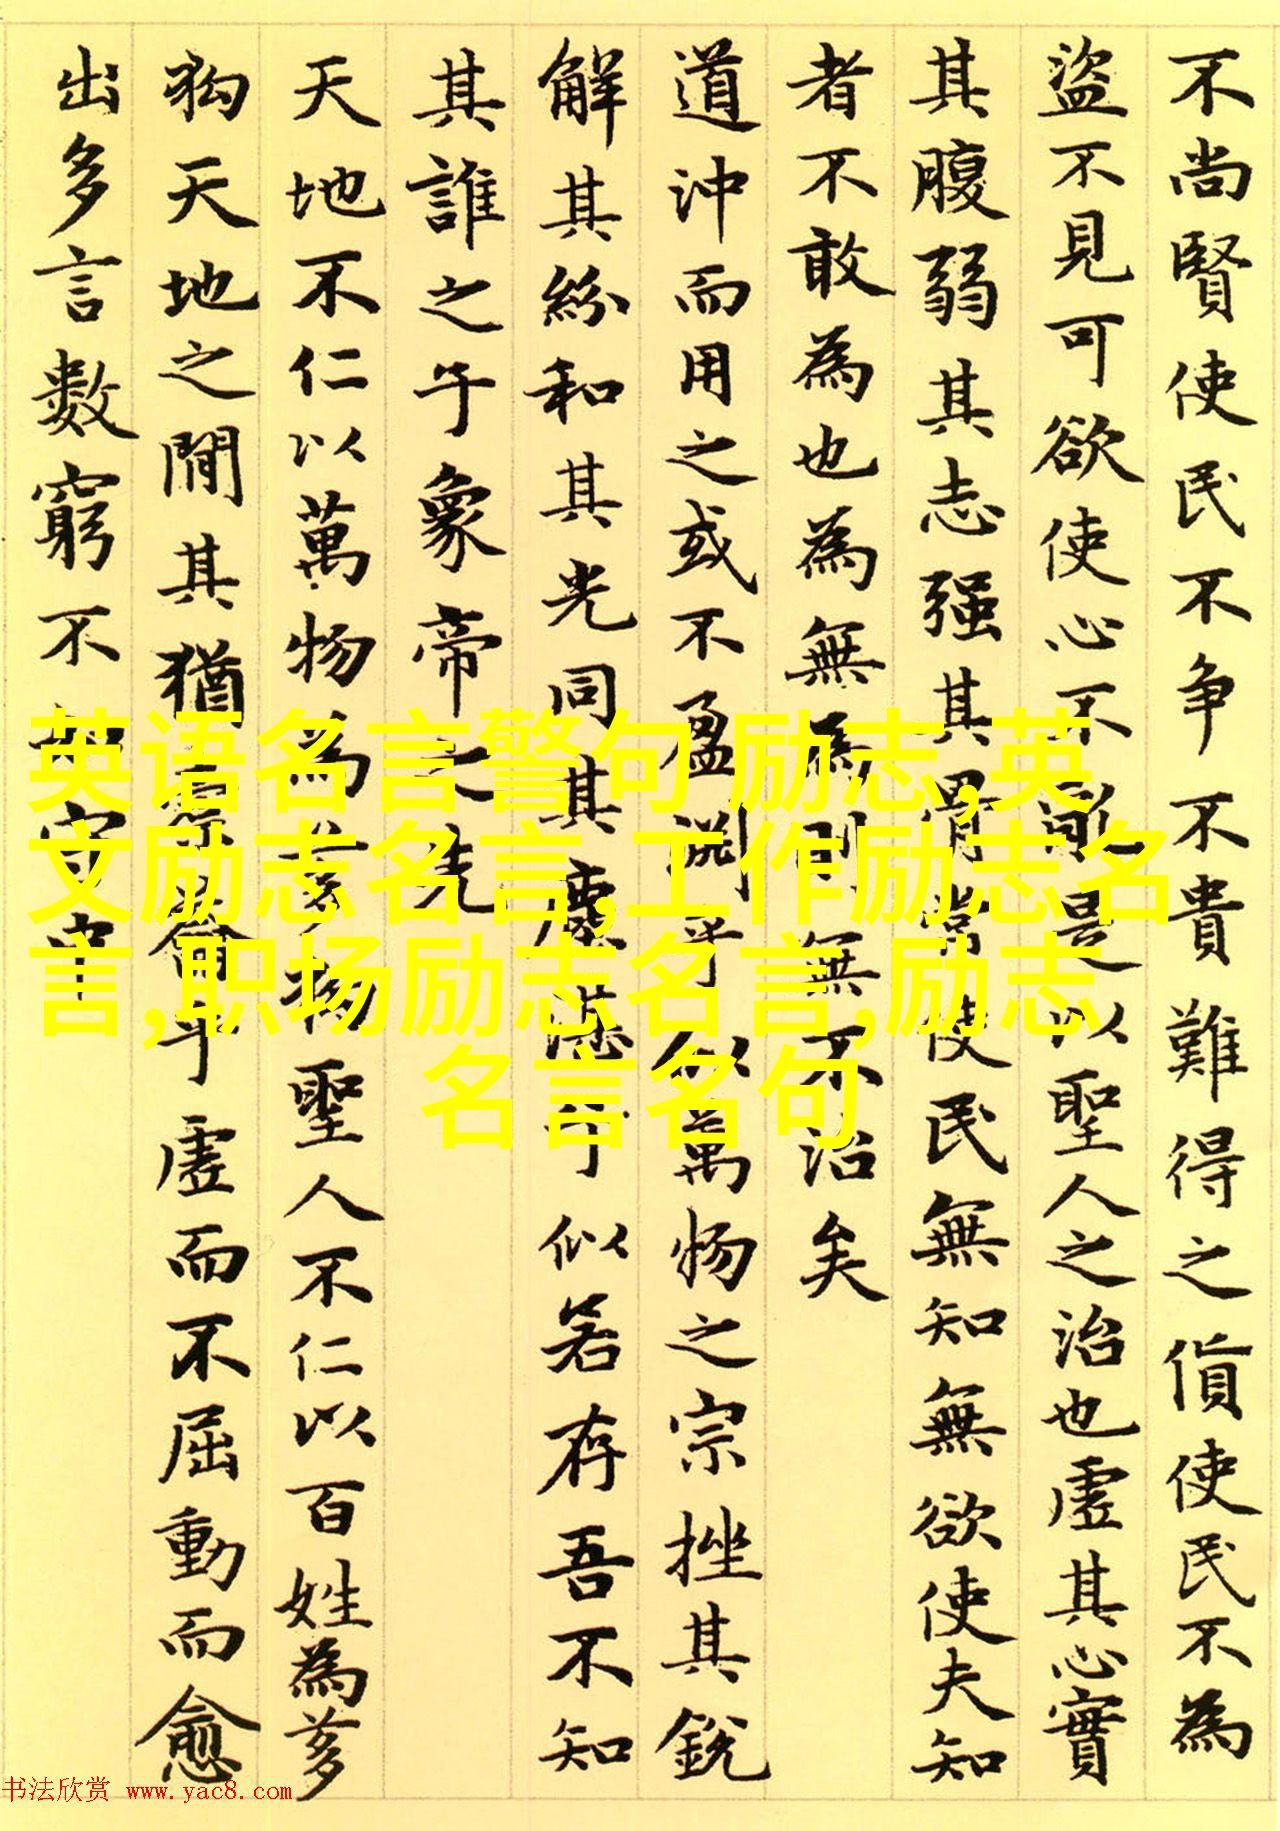 不尚賢使民不争不貴難得之貨使民不為
盜不見可欲使心不亂是以聖人之治也虛其心實
其腹弱其志强其骨常使民無知無欲使夫知
者不敢為也為無為則無不治矣
道沖而用之或不盈淵乎似萬物之宗挫其銳
解其紛和其光同其塵湛兮似若存吾不知
其誰之子象帝之先
天地不仁以萬物為芻狗聖人不仁以百姓為芻
狗天地之間其猶橐籥乎虛而不屈動而愈
出多言數窮不如守中
英语名言警句 励志,英
文励志名言,工作励志名
言,职场励志名言,励志
名言名句
书法欣赏 www.yac8.com